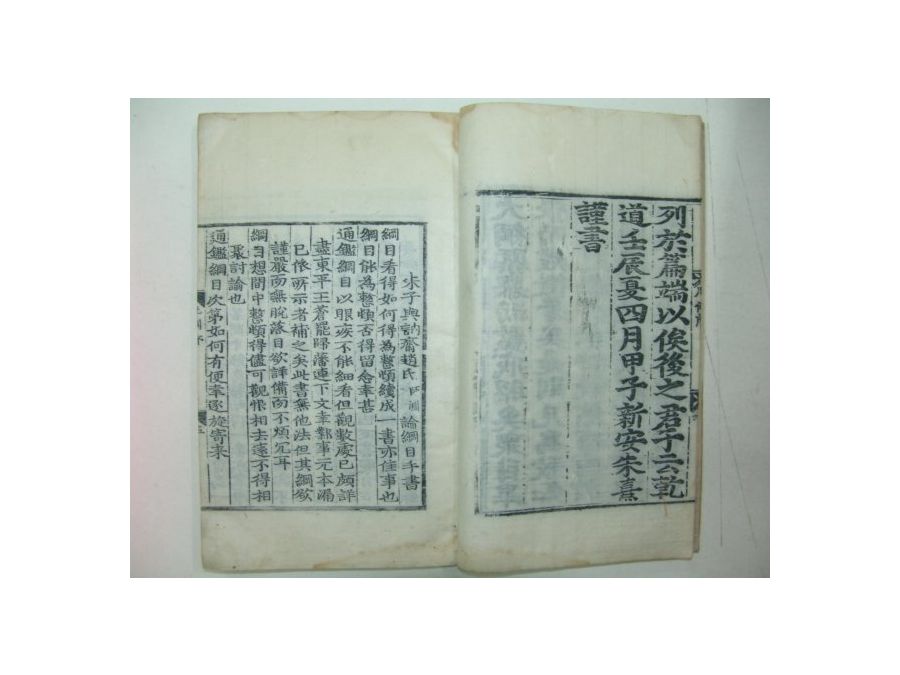 列於篇端以俟後之君子云乾
道壬辰夏四月甲子新安朱熹
謹書
朱子與訥齋趙氏師淵論綱目手書
綱目看得如何得為整頓續成一書亦佳事也
綱目能為整頓否得留念幸甚
通鑑綱目以眼疾不能細看但觀數處已頗詳
盡東平王蒼罷歸藩連下文幸鄴事元本漏
已依所示者補之矣此書無他法但其綱欲
謹嚴而無脫落目欲詳備而不煩冗耳
綱目想間中整頓得儘可觀恨相去遠不得相
聚討論也
通鑑綱目次第如何有便幸逐旋寄來